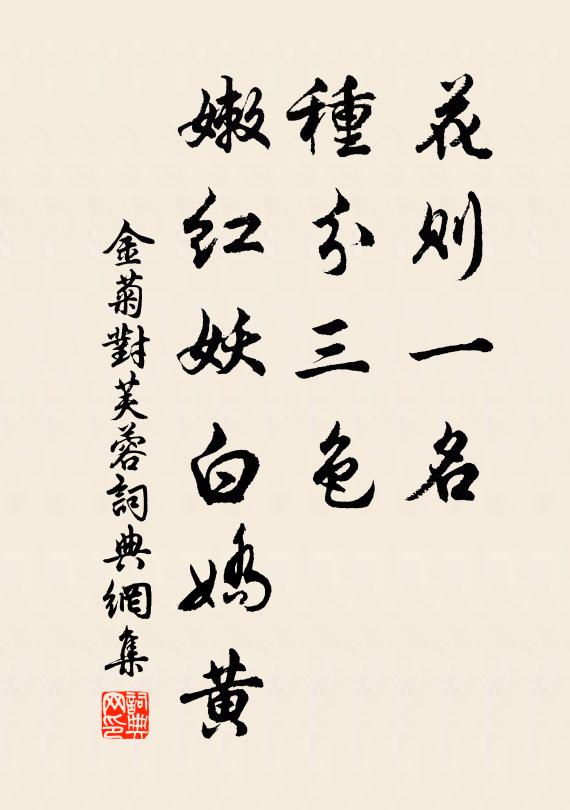 花则一名
種分三色
嫩红妖白嬌黄
金菊對芙蓉詞典網集
詞典网印